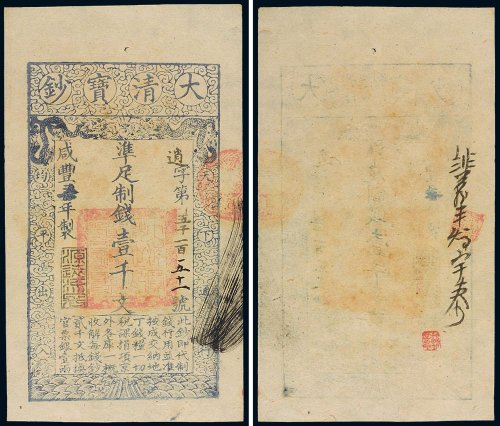 大清寶鈔
天下通行
逍字第五千一百五十一號
準足制錢壹千文
咸豐年製
均平出入
此鈔即代制
錢行用並准
按成交納地
丁錢糧一切
稅課捐項京
外各庫一概
收解每錢鈔
貳千文抵換
官票銀壹兩